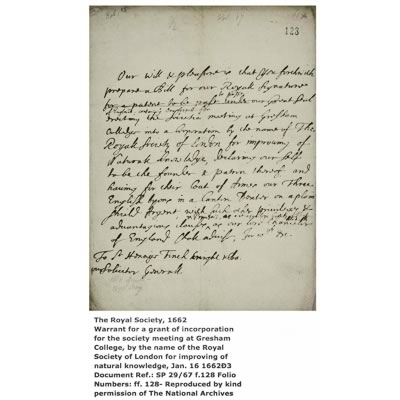 128
Our will & pleasure is that you forthwith
prepare a Bill for our Royall signature
to passe
for a patent under our Great Seal
erecting the Societie meeting at Gresham
Colledge into a Corporation by the name of The
Royall Society of London for improving of
Naturall knowledge, declaring our self
to be the founder & patron thereof and
having for their Coat of Armes our Three
English Lyons in a Canton Dexter on a plain
Sheild Argent with such other priviledges &
advantagious clauses as our Lord Chancelor
of England shall advise,
To Sr Heneage Finch knight &
our Solicitor Generall
The Royal Society, 1662
Warrant for a grant of incorporation
for the society meeting at Gresham
College, by the name of the Royal
Society of London for improving of
natural knowledge, Jan. 16 1662D3
Document Ref.: SP 29/67 f.128 Folio
Numbers: ff. 128- Reproduced by kind
permission of The National Archives